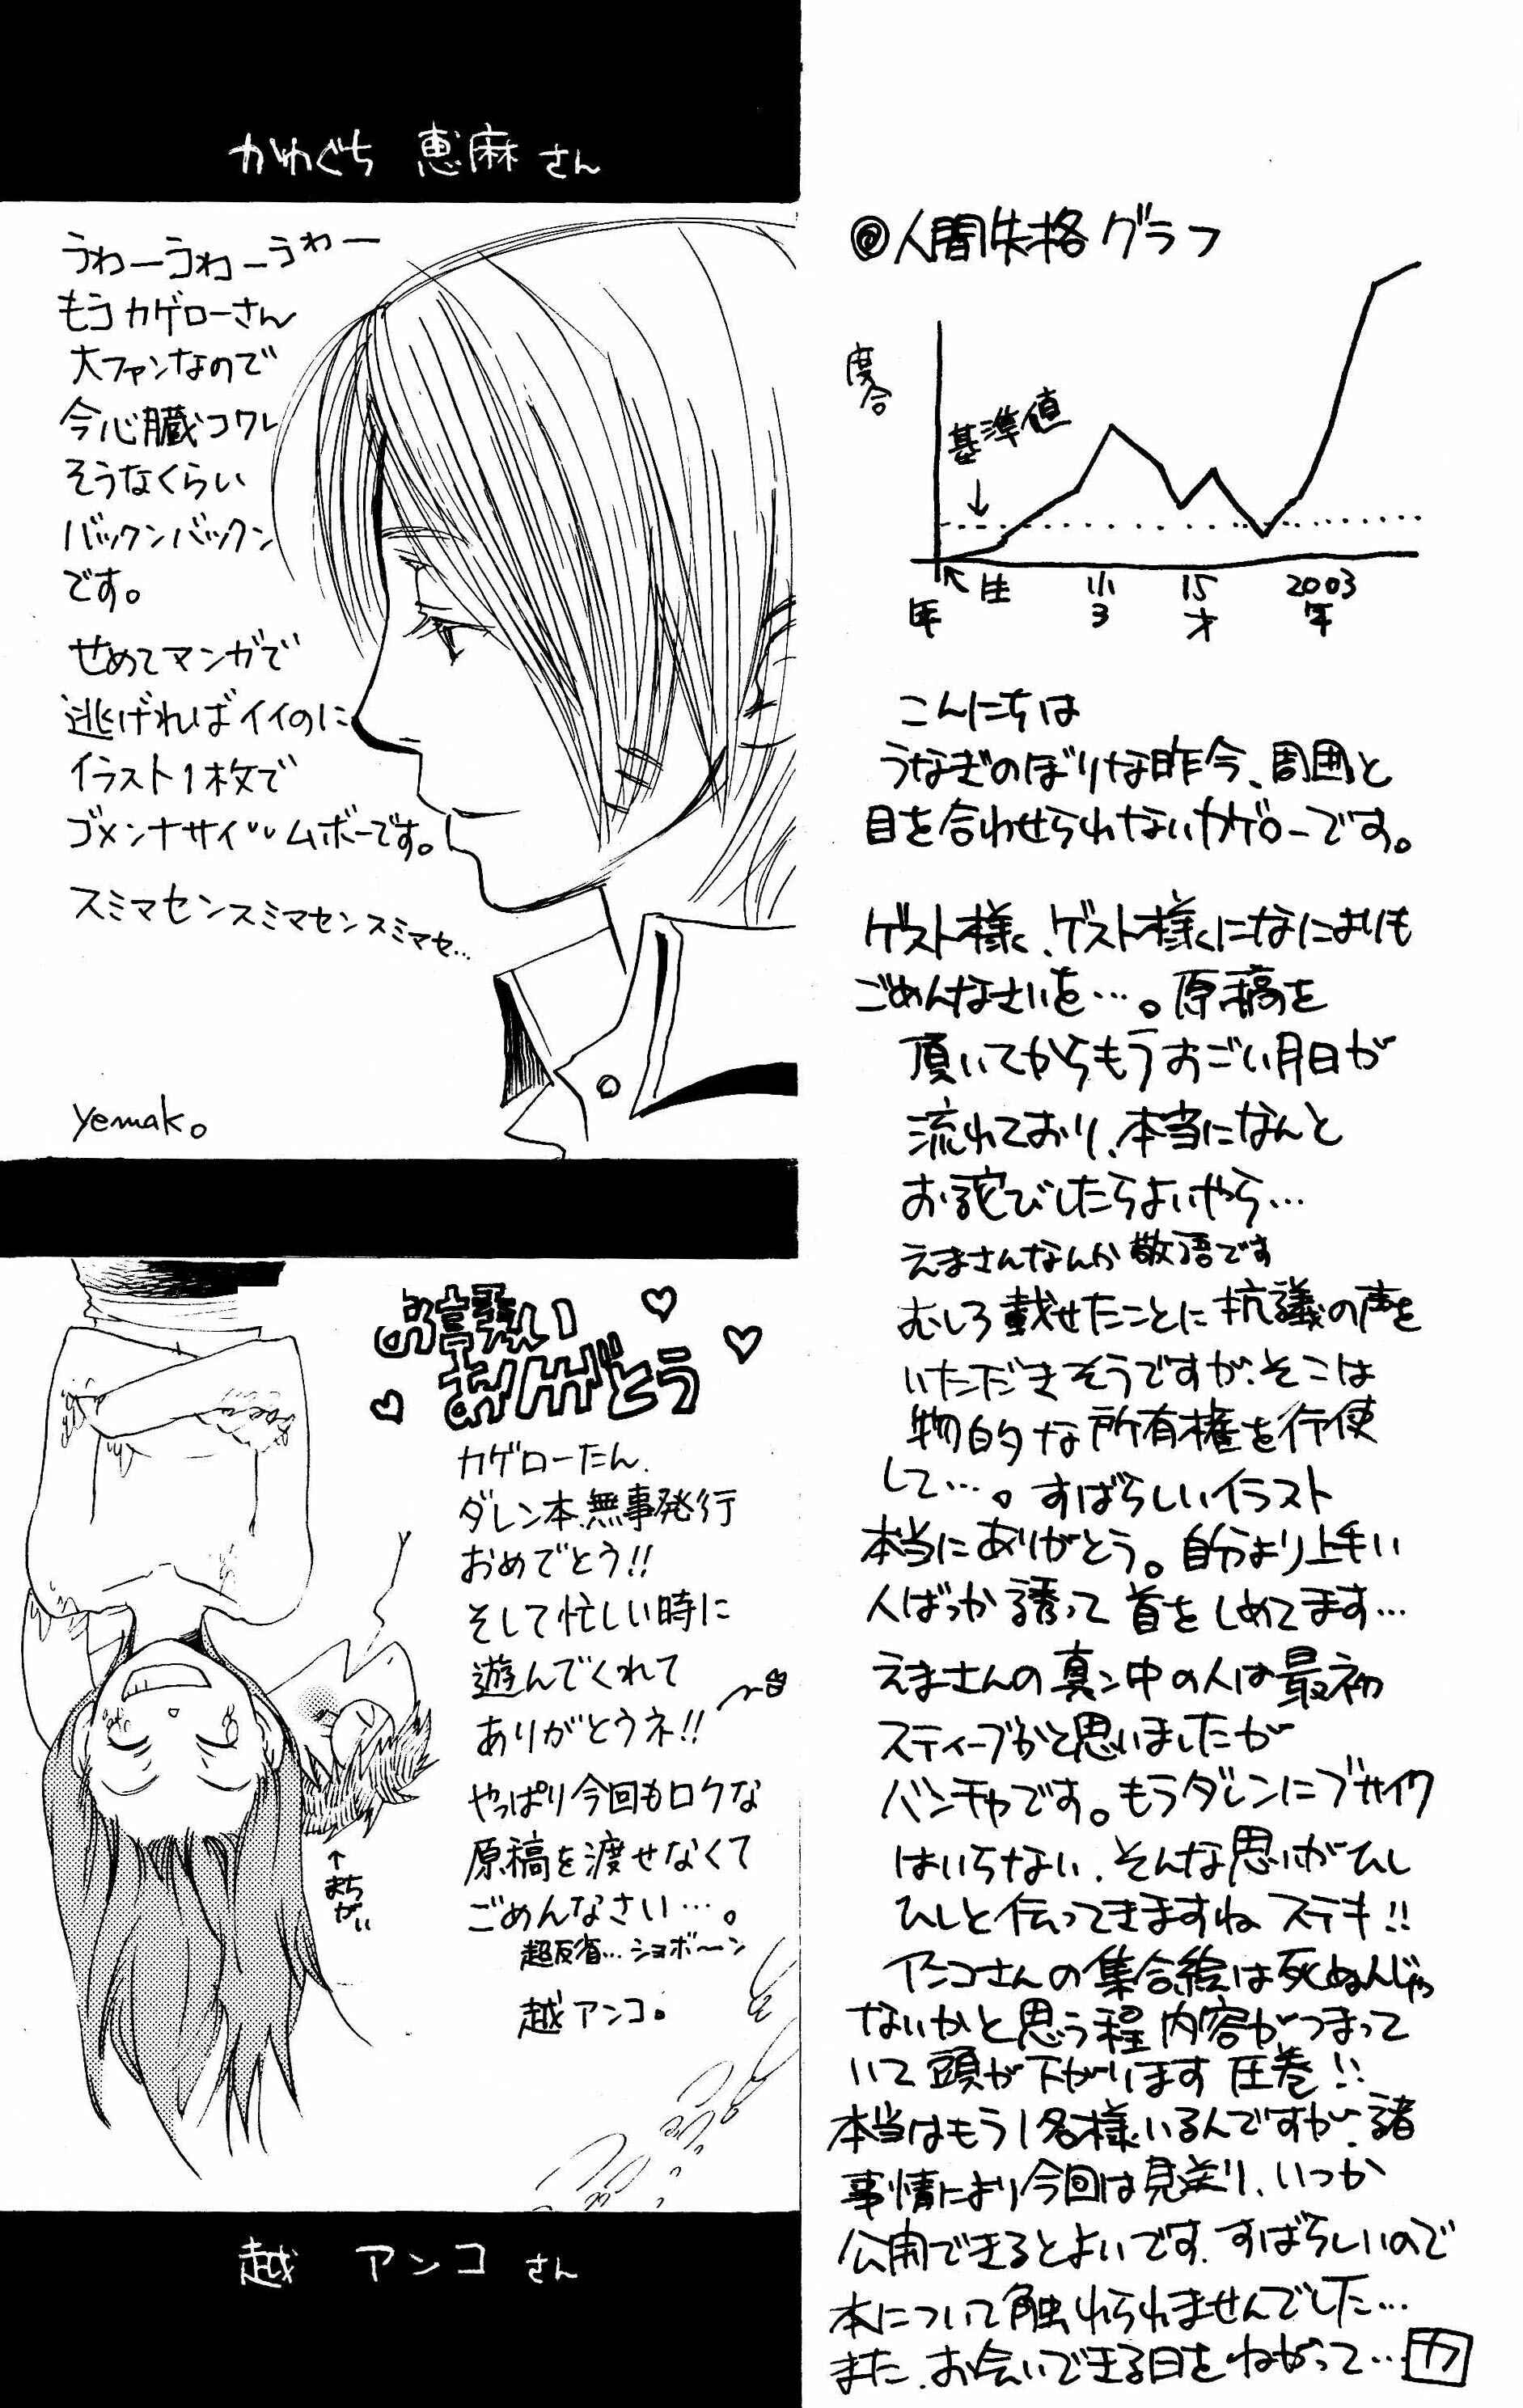 かわぐち 恵麻さん
うわーうわーうわー
もうカゲローさん
大ファンなので
今心臓コワレ
そうなくらい
バックンバックン
です。
せめてマンガで
逃げればイイのに
イラスト1枚で
ゴメンナサイ〃ムボーです。
スミマセンスミマセンスミマセ…
yemak。
お誘い
ありがとう
カゲローたん、
ダレン本、無事発行
おめでとう!!
そして忙しい時に
遊んでくれて
ありがとうネ!!
やっぱり今回もロクな
原稿を渡せなくて
ごめんなさい…。
超反省…ショボ〜ン
越アンコ。
↑まちがい
越 アンコ さん
◎人間失格グラフ
度合
基準値
↓
年
↖生
13
15才
2003年
こんにちは
うなぎのぼりな昨今、周囲と
目を合わせられないカゲローです。
ゲスト様、ゲスト様になによりも
ごめんなさいを…。原稿を
頂いてからもうすごい月日が
流れており、本当になんと
お詫びしたらよいやら…
えまさんなんか敬語です
むしろ載せたことに抗議の声を
いただきそうですが、そこは
物的な所有権を行使
して…。すばらしいイラスト
本当にありがとう。自分より上手い
人ばっか誘って首をしめてます…
えまさんの真ン中の人は最初
スティーブかと思いましたが
バンチャです。もうダレンにブサイク
はいらない、そんな思いがひし
ひしと伝ってきますね ステキ!!
アンコさんの集合絵は死ぬんじゃ
ないかと思う程 内容がつまって
いて頭が下がります 圧巻!!
本当はもう1名様いるんですが、諸
事情により今回は見送り、いつか
公開できるとよいです、すばらしいので
本について触れられませんでした…
また、お会いできる日をねがって…カ